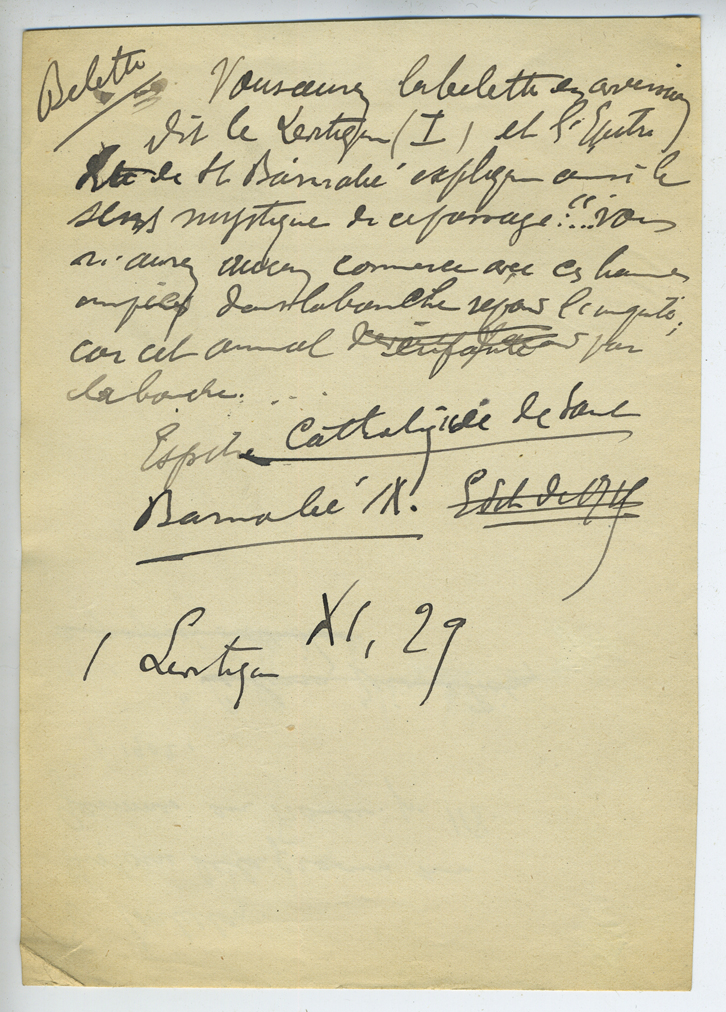 Belette
Vous aurez la belette en aversion
dit le Levitique (I) et l'Epitre
de St Barnabé explique ainsi le
sens mystique de ce passage : "... Vous
n'aurez aucun commerce avec ces hommes
dans la bouche l'impureté;
car cet animal par
la bouche. ...
Catholique de Saint
Barnabé IX. Edit de
1 Levitique XI, 29